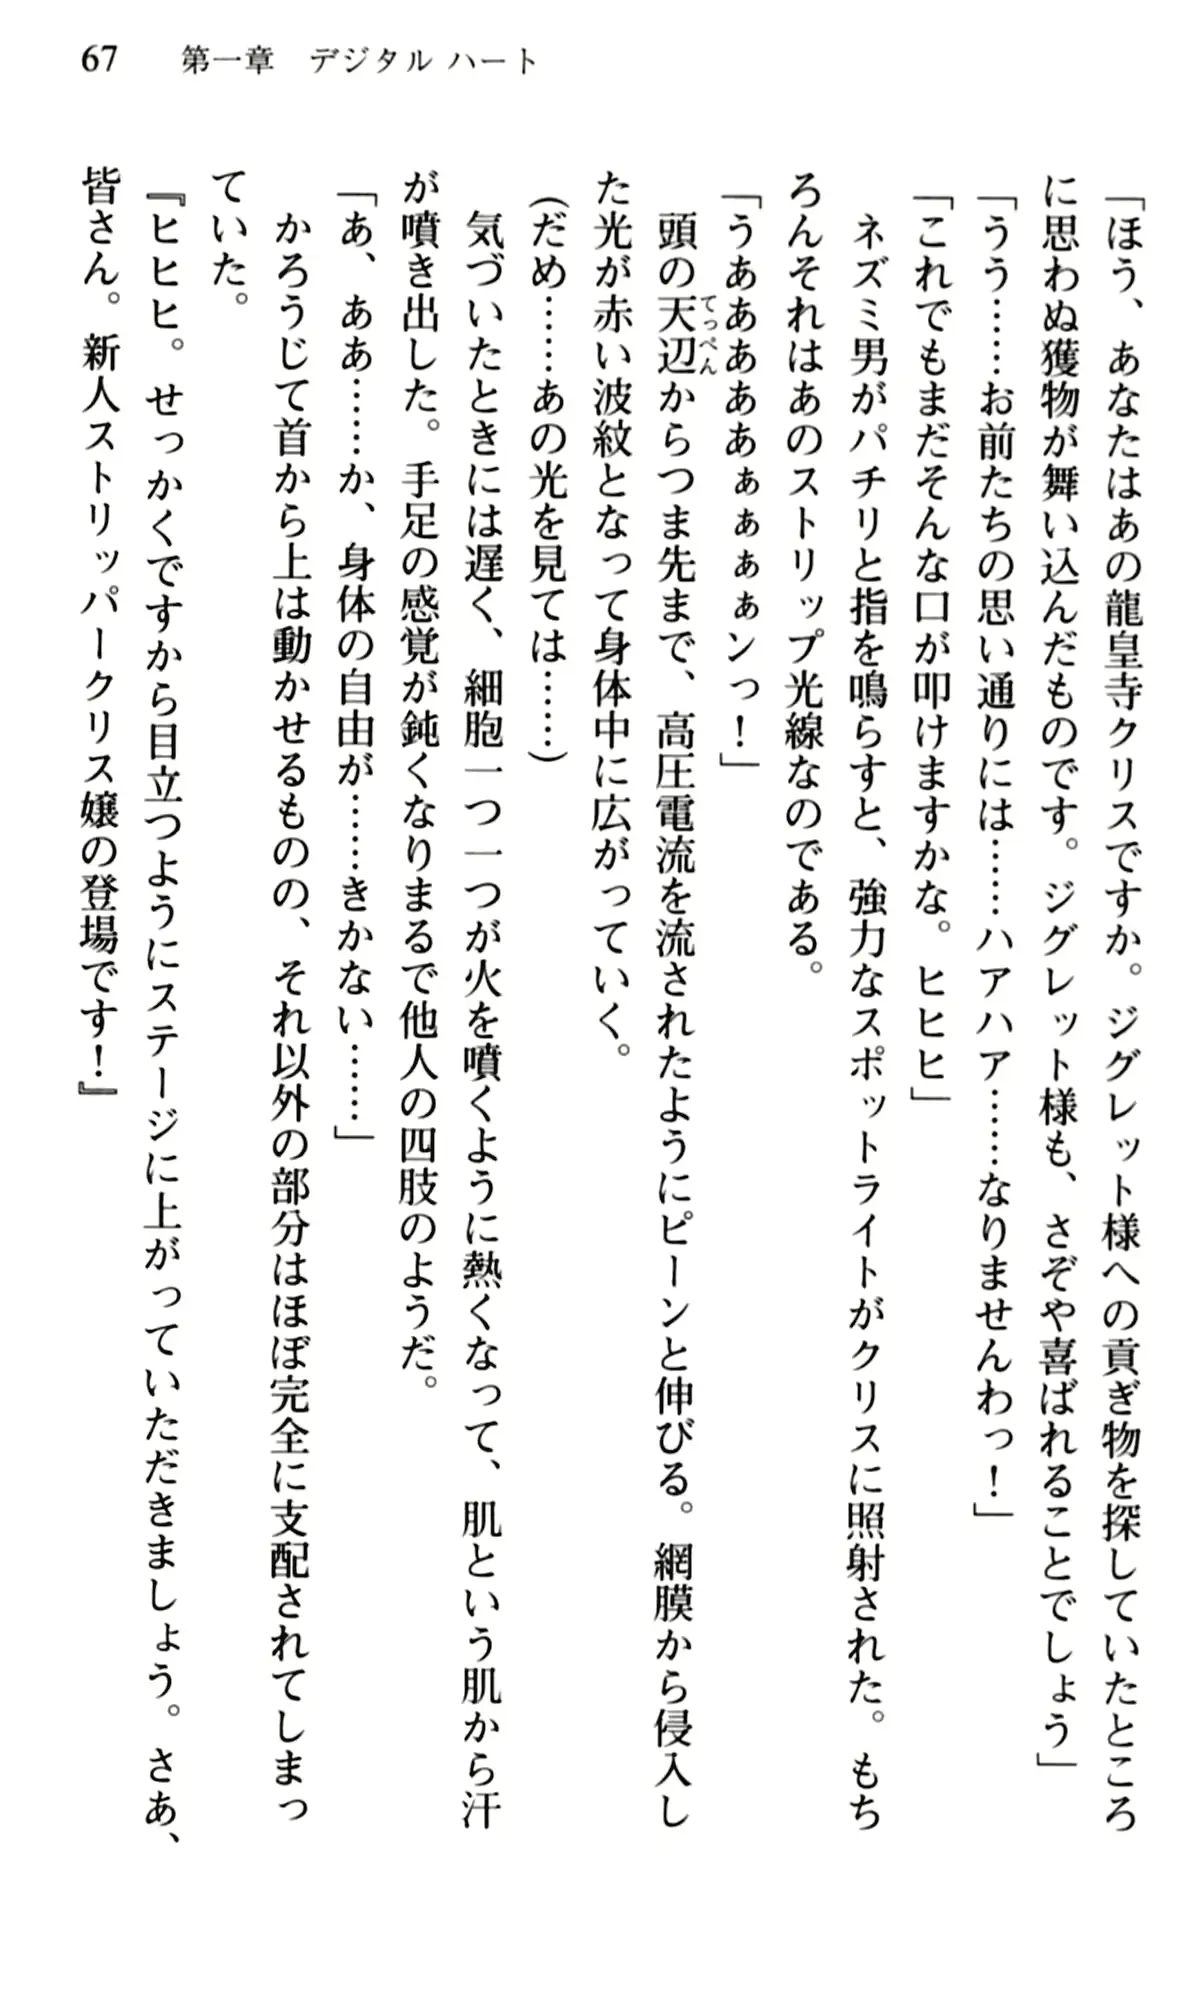 67 第一章 デジタル ハート
「ほう、あなたはあの龍皇寺クリスですか。ジグレット様への貢ぎ物を探していたところ
に思わぬ獲物が舞い込んだものです。ジグレット様も、さぞや喜ばれることでしょう」
「うう……お前たちの思い通りには……ハアハア……なりませんわっ！」
「これでもまだそんな口が叩けますかな。ヒヒヒ」
　ネズミ男がパチリと指を鳴らすと、強力なスポットライトがクリスに照射された。もち
ろんそれはあのストリップ光線なのである。
「うああああぁぁぁぁンっ！」
　頭の天辺からつま先まで、高圧電流を流されたようにピーンと伸びる。網膜から侵入し
てっぺん
た光が赤い波紋となって身体中に広がっていく。
（だめ……あの光を見ては……）
　気づいたときには遅く、細胞一つ一つが火を噴くように熱くなって、肌という肌から汗
が噴き出した。手足の感覚が鈍くなりまるで他人の四肢のようだ。
「あ、ああ……か、身体の自由が……きかない……」
　かろうじて首から上は動かせるものの、それ以外の部分はほぼ完全に支配されてしまっ
ていた。
『ヒヒヒ。せっかくですから目立つようにステージに上がっていただきましょう。さあ、
皆さん。新人ストリッパークリス嬢の登場です！』